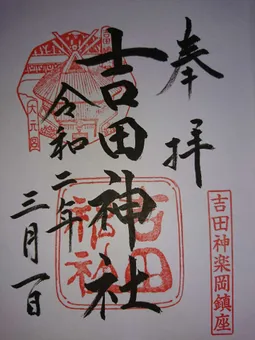 奉拝
吉田神楽岡鎮座
吉田神社
吉田神社
大元宮
令和二年
三月一日